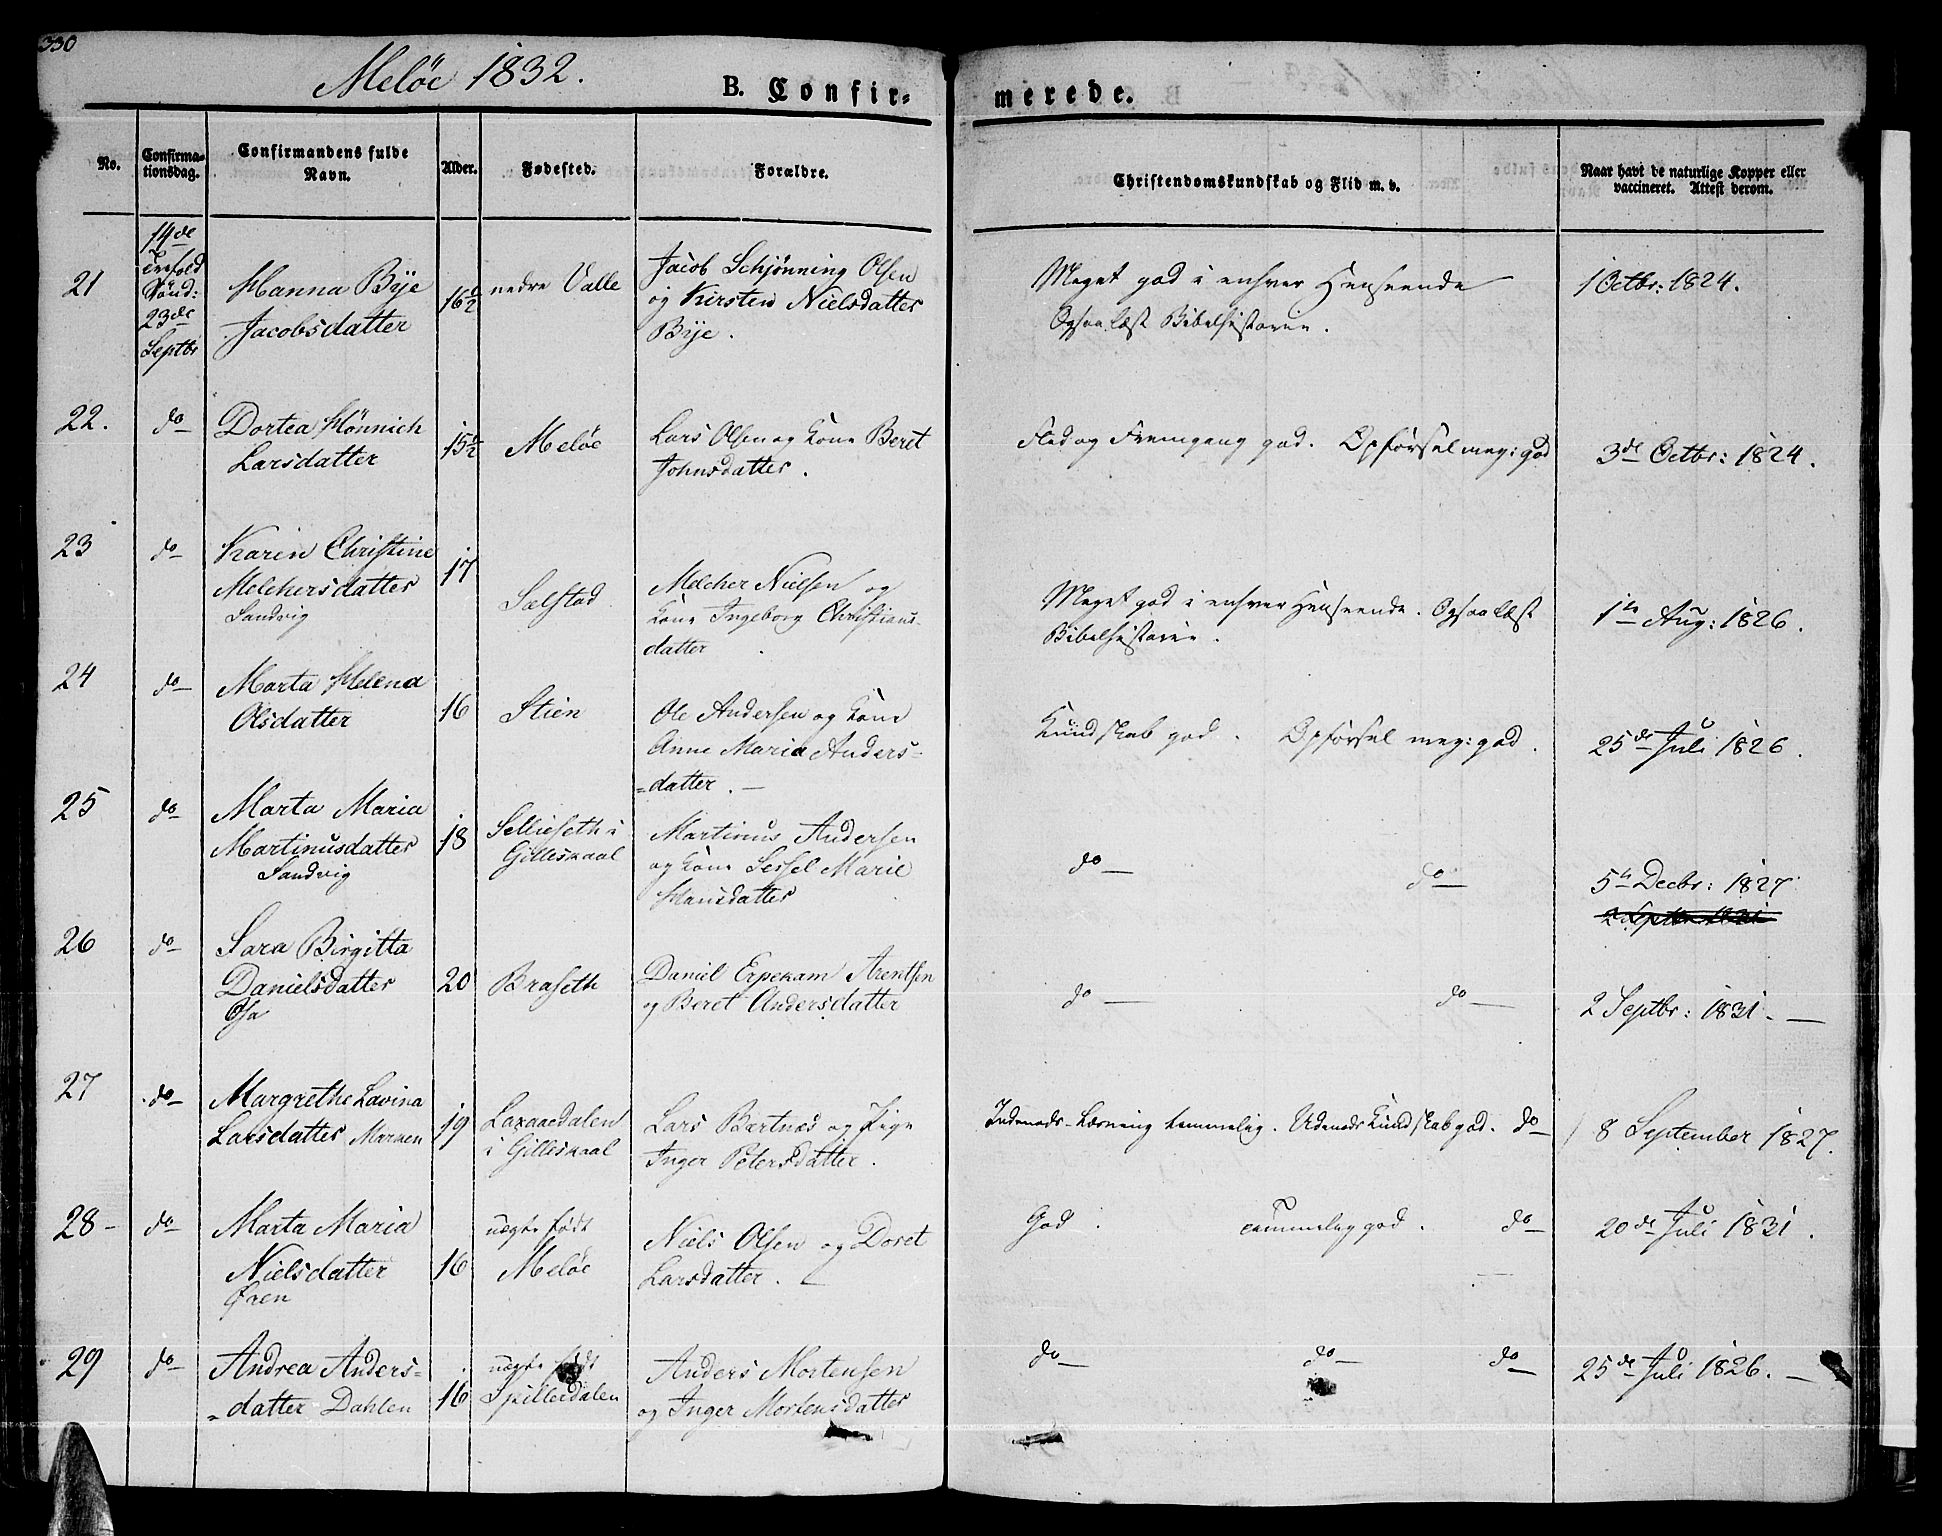 330
Meløe 1832.
B. Confir-
merede.
No.
Confirma-
tionsdag.
Confirmandens fulde
Navn.
Alder.
Fødested.
Forældre.
Christendomskundskab og Flid m. v.
Naar havt de naturlige Kopper eller
vaccineret. Attest derom.
21
14de
Trefold
Sönd:
23de
Septbr
Hanna Bye
Jacobsdatter
16½
nedre Valle
Jacob Schjønning Olsen
og Kirsten Nielsdatter
Bye.
Meget god i enhver Henseende
Ogsaa læst Bibelhistorien.
1 Octbr: 1824.
22.
do
Dortea Hönnich
Larsdatter
15½
Meløe
Lars Olsen og Kone Beret
Johnsdatter.
Flid og Fremgang god. Opførsel meg: god
3de Octbr: 1824.
23
do
Karen Christine
Melchersdatter
Sandvig
17
Selstad
Melcher Nielsen og
Kone Ingeborg Christians
datter
Meget god i enhver Henseende. Ogsaa læst
Bibelhistorien.
1te Aug: 1826.
24
do
Marta Helena
Olsdatter
16
Stien
Ole Andersen og Kone
Anne Maria Anders-
=datter. —
Kundskab god. Opførsel meg: god.
25de Juli 1826.
25
do
Marta Maria
Martinusdatter
Sandvig
18
Sellieseth i
Gilleskaal
Martinus Andersen
og Kone Sessel Marie
Hansdatter
do — do —
5te Decbr: 1827
2 Septbr 1831
26
do
Sara Birgitta
Danielsdatter
Osa
20
Braseth
Daniel Erpekam Arentsen
og Beret Andersdatter
do — do —
2 Septbr: 1831. —
27
do
Margrethe Lavina
Larsdatter Marken
19
Laxaaedalen
i Gilleskaal
Lars Bartnæs og Pige
Inger Petersdatter.
Indenads-Læsning temmelig. Udenads Kundskab god. do
8 September 1827.
28 -
do
Marta Maria
Nielsdatter
Øren
16
uægte født
Meløe
Niels Olsen og Doret
Larsdatter.
God. temmelig god. do
20de Juli 1831.
29
do
Andrea Anders=
=datter Dahlen
16
uægte født
Spilderdalen
Anders Mortensen
og Inger Mortensdatter
do — do — do
25de Juli 1826. —